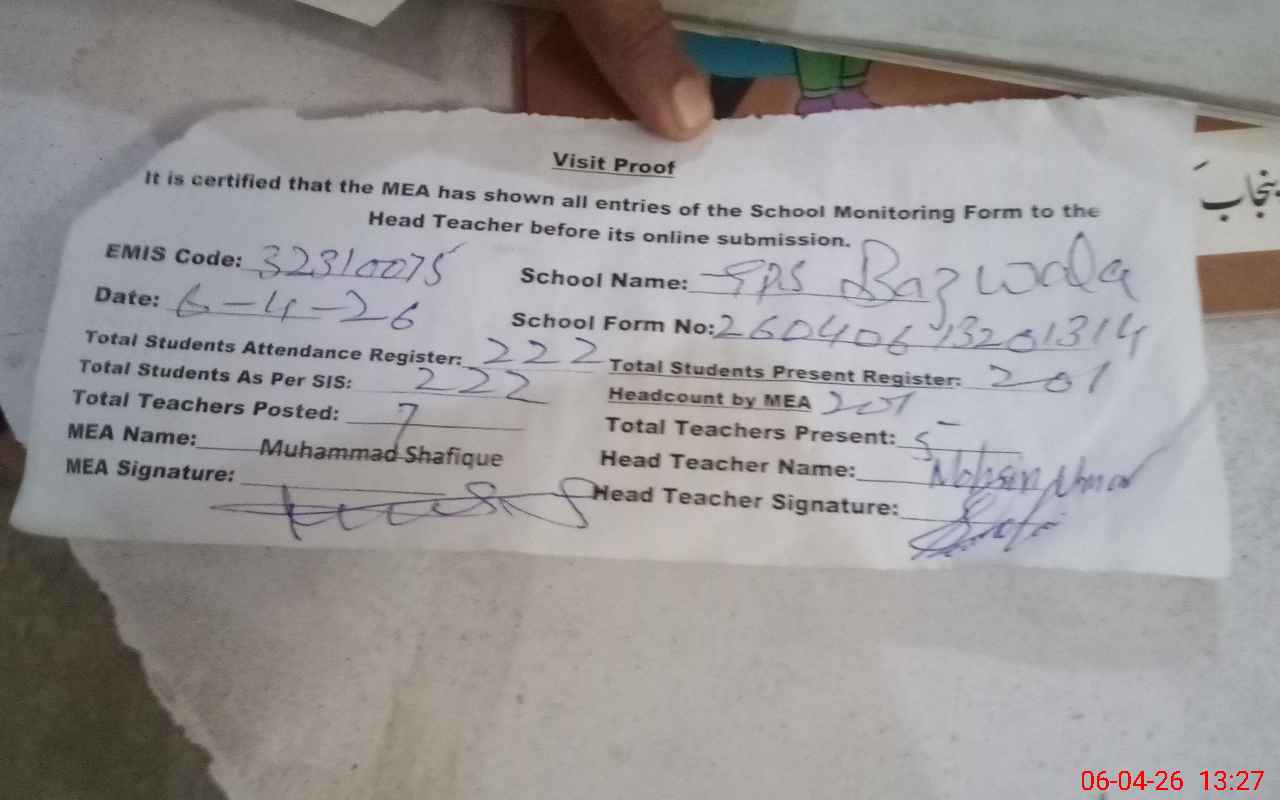 Visit Proof
It is certified that the MEA has shown all entries of the School Monitoring Form to the
Head Teacher before its online submission.
EMIS Code: 32310075 School Name: GPS Bazwala
Date: 6-4-26 School Form No: 26040613201314
Total Students Attendance Register: 222 Total Students Present Register: 201
Total Students As Per SIS: 222 Headcount by MEA 201
Total Teachers Posted: 7 Total Teachers Present: 5
MEA Name: Muhammad Shafique Head Teacher Name: Mohsin Umar
MEA Signature: Head Teacher Signature:
پنجاب
06-04-26 13:27